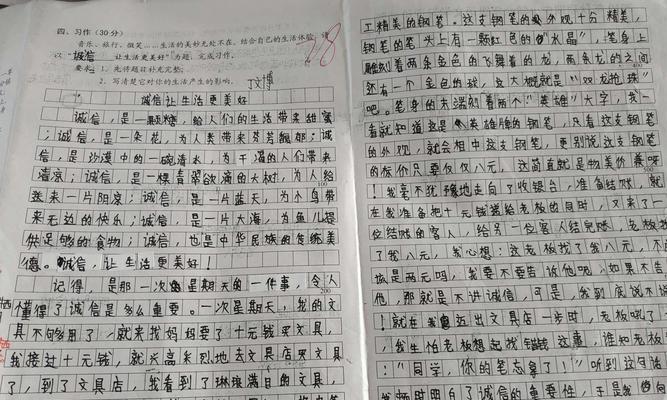 四、习作(30分)
音乐、旅行、微笑……生活的美妙无处不在。结合自己的生活体验,请
以“诚信 让生活更美好”为题,完成习作。
要求:1. 先将题目补充完整。
2. 写清楚它对你的生活产生的影响。
28
丁文博
诚信让生活更美好
诚信,是一颗糖,给人们的生活带来甜蜜
;诚信,是一朵花,为人类带来芬芳馥郁;诚
信,是沙漠中的一碗清水,为干渴的人们带来
清凉;诚信,是一棵青翠欲滴的大树,为人给
送来一片阴凉;诚信,是一片蓝天,为小鸟带
100
来无边的快乐;诚信,是一片大海,为鱼儿提
供足够的食物;诚信,也是中华民族的传统美
德。诚信,让生活更美好!
记得,是那一次星期天的一件事,令人
200
懂得了诚信是多么重要。一次星期天,我的文
具不句多用了,就来找妈妈要了十元钱买文具,
我接过十元钱,就兴高采烈地去文具店买文具
了,到了文具店,我看到了琳琅满目的文具,
工精美的钢笔。这支钢笔的外观十分精美,
钢笔的笔头上有一颗红色的“水晶”,笔身上
雕刻着两条金色的飞舞着的龙,两条龙的之间
还有一个金色的球,这大概就是“双龙抢珠”
吧。笔身的末端刻着两个“英雄”大字,我一
看就知道这是英雄牌的钢笔,只看这支钢笔
的外观,就会相中这支钢笔,更别说这支钢笔
的标价只要仅仅八元,这简直就是物美价廉呀
!我毫不犹豫地走向了收银台,准备结账,就
在我准备把十元钱递给老板的同时,又来了一
位结账的客人,给另一位客人结完账,老板
了我八元,我心想:这老板找了我八元,不
该是两元吗,我要不要告诉他呢,如果不告
他,那就是不讲诚信,可是,我到底说不说
!就在我迈出文具店一步时,老板吼了一
,我生怕老板想起找错钱这事,谁知老板
:“同学,你的笔忘拿了!”听到这句话
我顿时明白了诚信的重要性,于是我向